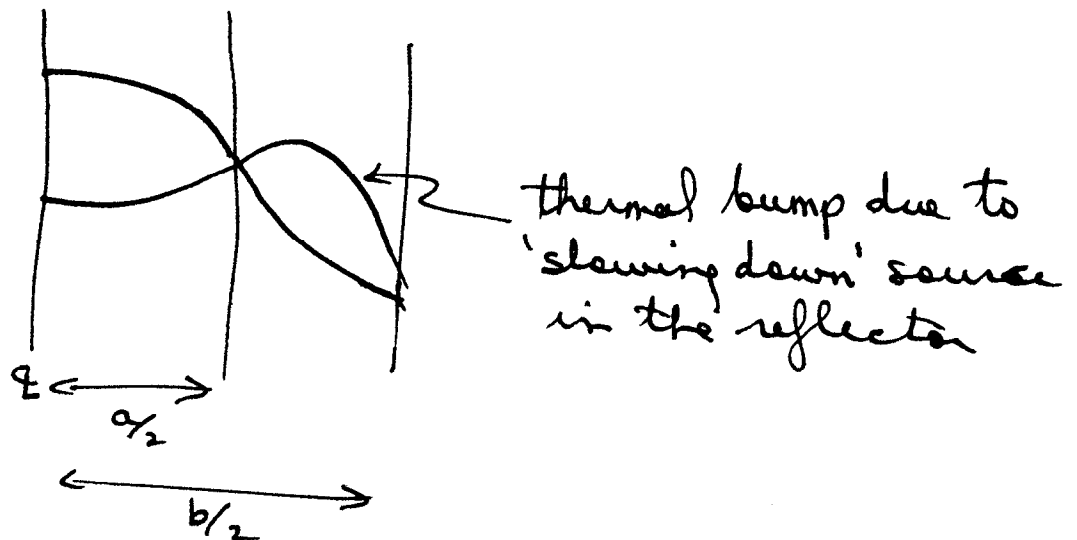 thermal bump due to
'slowing down' source
in the reflector
℄
a/2
b/2